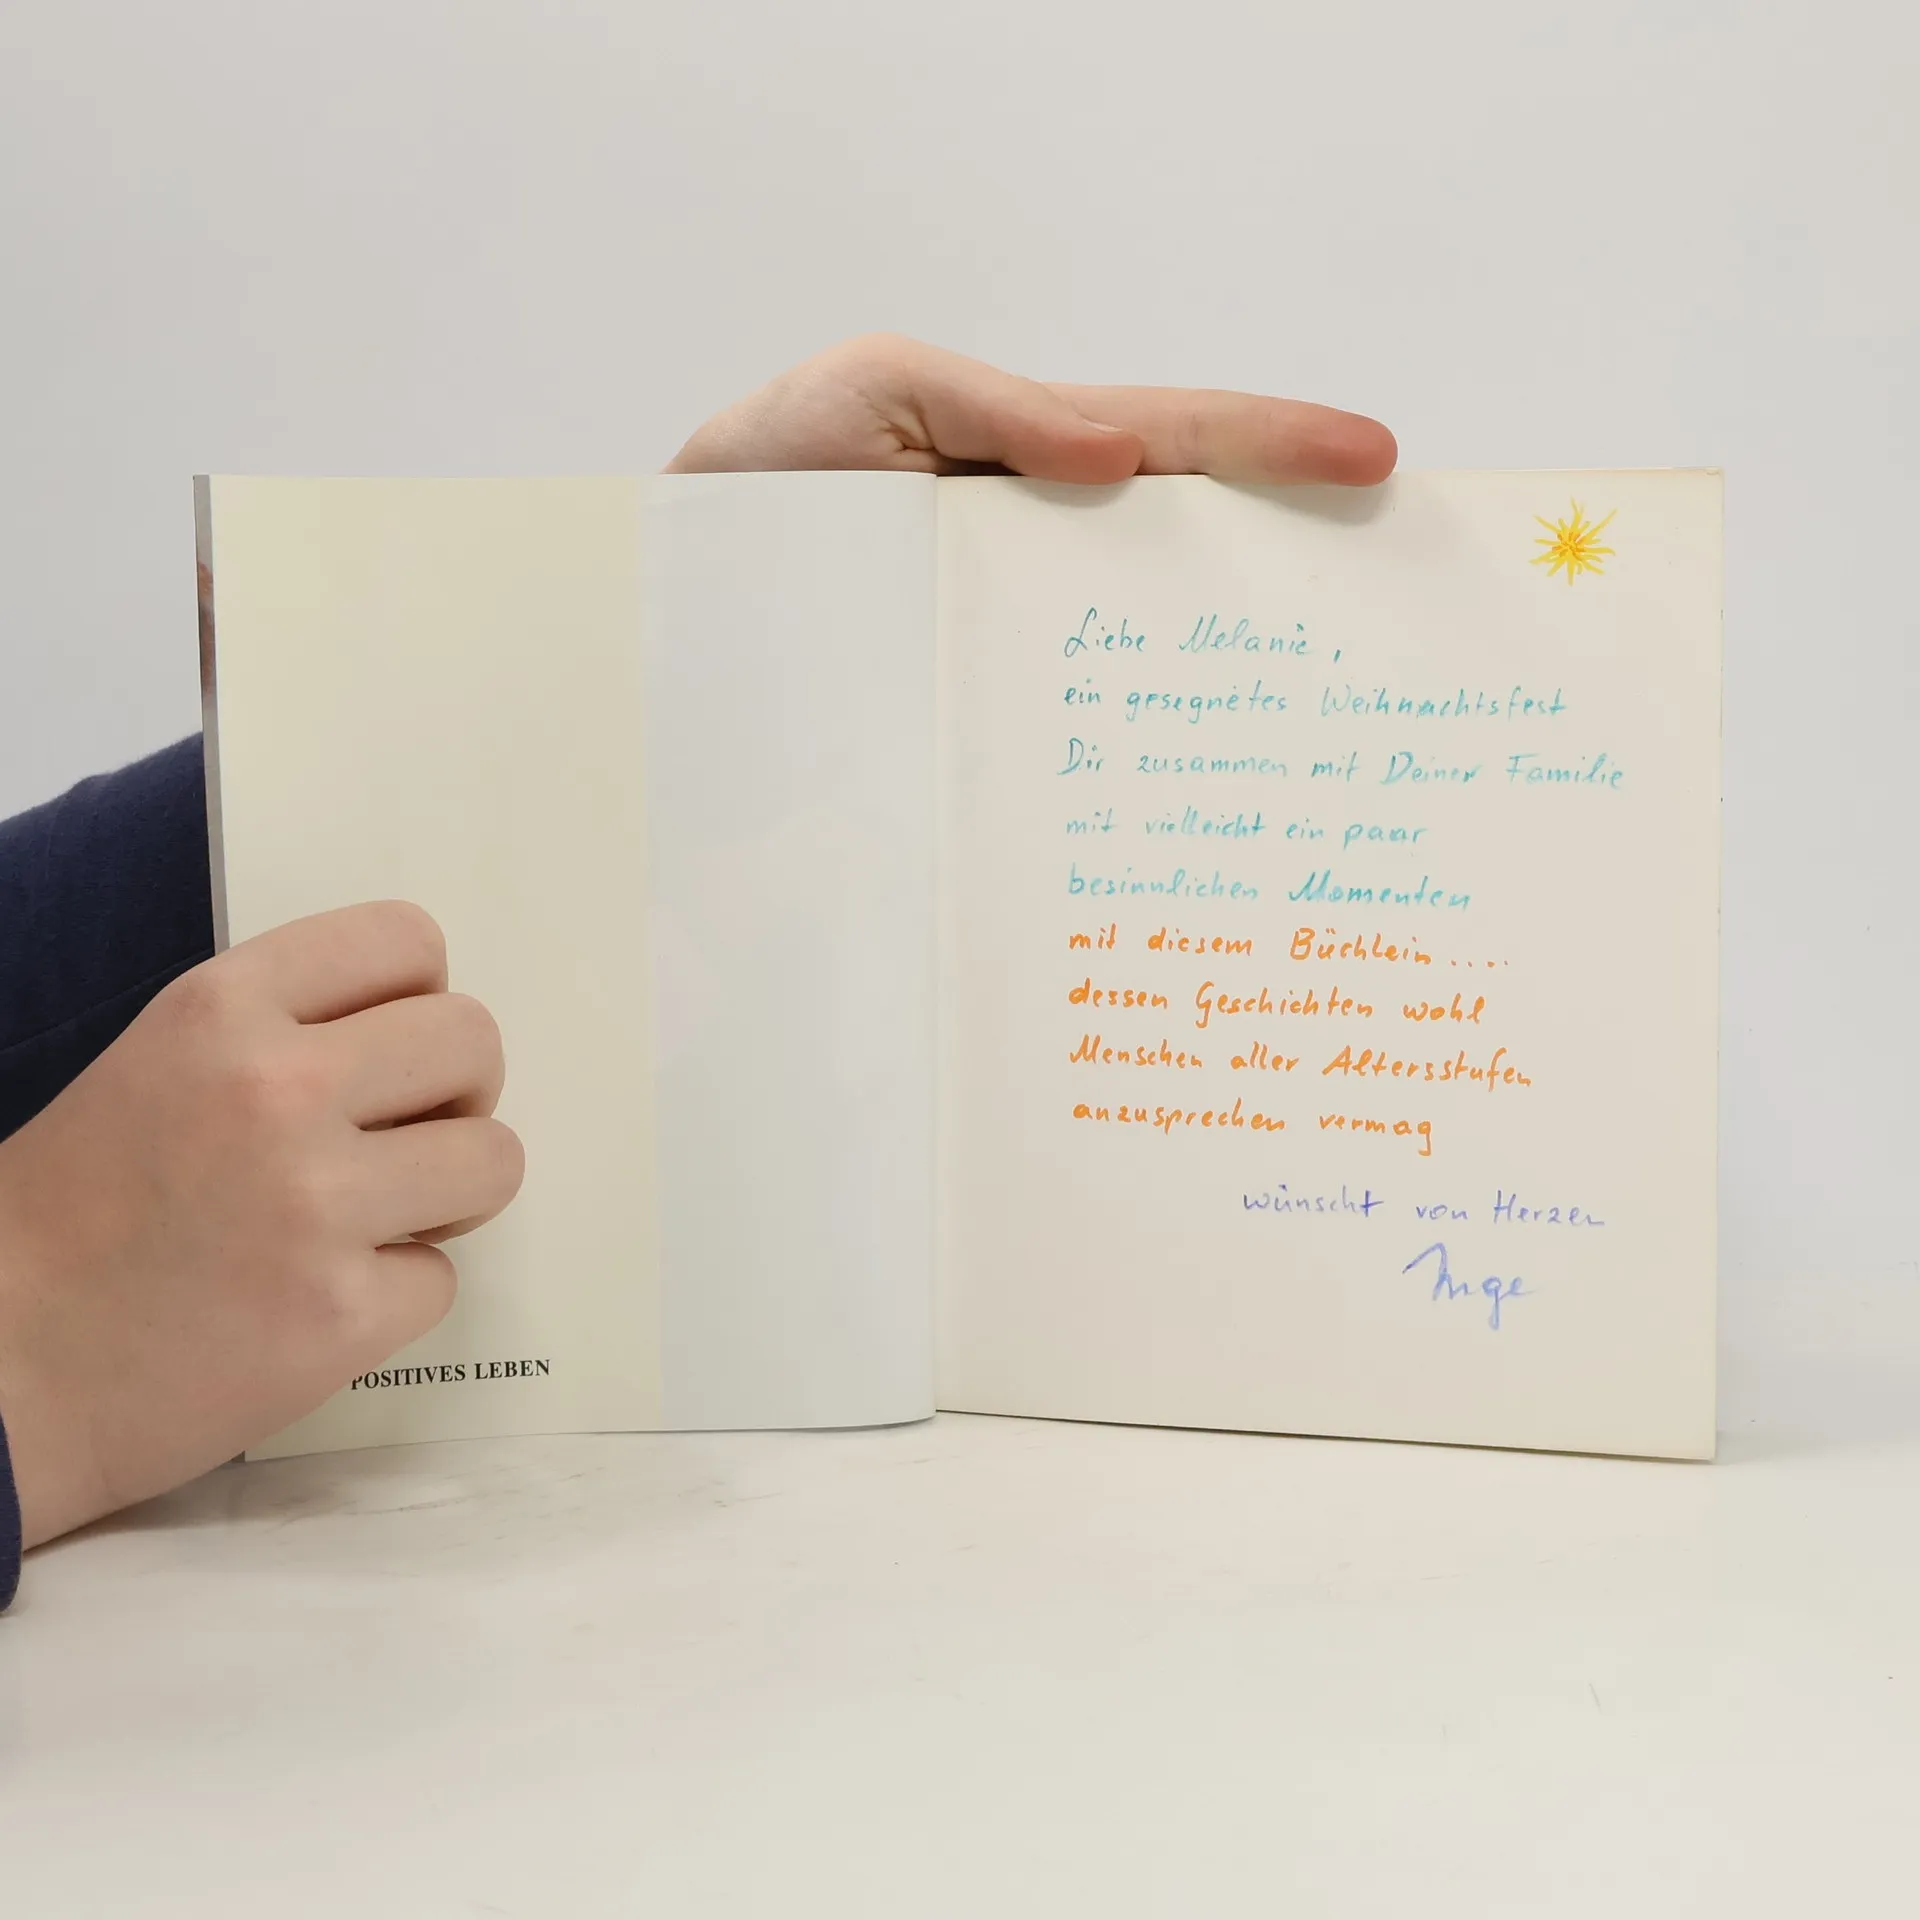 POSITIVES LEBEN
Liebe Melanie,
ein gesegnetes Weihnachtsfest
Dir zusammen mit Deiner Familie
mit vielleicht ein paar
besinnlichen Momenten
mit diesem Büchlein....
dessen Geschichten wohl
Menschen aller Altersstufen
anzusprechen vermag
wünscht von Herzen
Inge